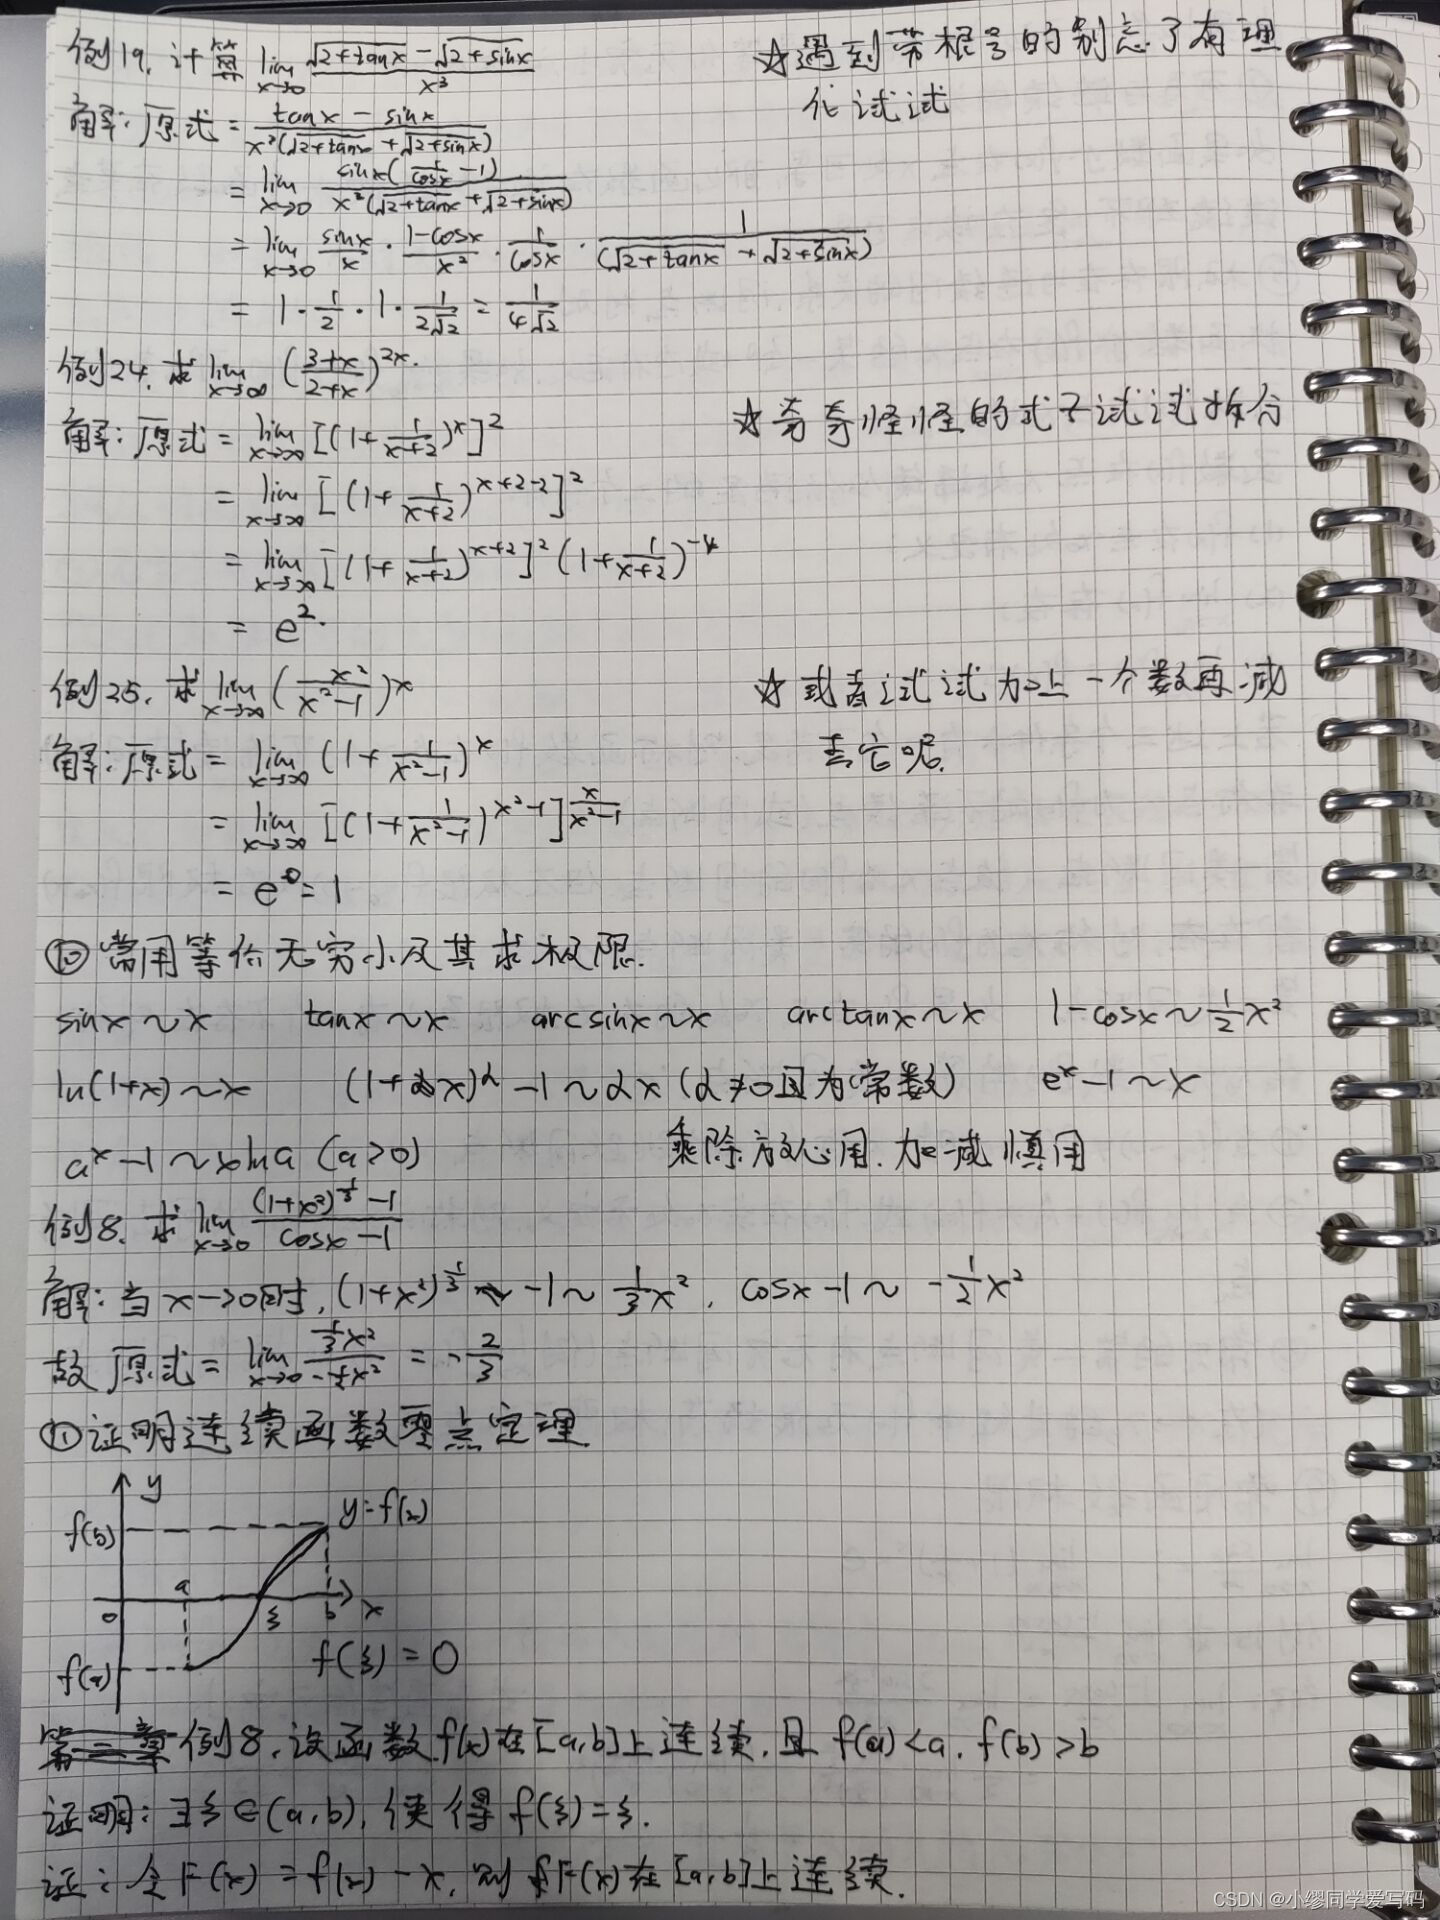 例19. 计算 lim x→0 (√(2+tanx) − √(2+sinx)) / x³
☆遇到带根号的别忘了有理
化试试
解:原式 = (tanx − sinx) / (x³(√(2+tanx) + √(2+sinx)))
= lim x→0 sinx(1/cosx − 1) / (x³(√(2+tanx) + √(2+sinx)))
= lim x→0 sinx/x · (1−cosx)/x² · 1/cosx · 1/(√(2+tanx) + √(2+sinx))
= 1 · 1/2 · 1 · 1/(2√2) = 1/(4√2)
例24. 求 lim x→∞ ((3+x)/(2+x))^(2x).
解:原式 = lim x→∞ [(1+1/(x+2))^x]²
☆奇奇怪怪的式子试试拆分
= lim x→∞ [(1+1/(x+2))^(x+2−2)]²
= lim x→∞ [(1+1/(x+2))^(x+2)]² (1+1/(x+2))^(−4)
= e².
例25. 求 lim x→∞ (x²/(x²−1))^x
☆或者试试加上一个数再减
去它呢.
解:原式 = lim x→∞ (1+1/(x²−1))^x
= lim x→∞ [(1+1/(x²−1))^(x²−1)]^(x/(x²−1))
= e⁰ = 1
⑩常用等价无穷小及其求极限.
sinx~x tanx~x arcsinx~x arctanx~x 1−cosx~1/2 x²
ln(1+x)~x (1+x)^α −1~αx (α≠0且为常数) e^x−1~x
a^x−1~xlna (a>0) 乘除放心用.加减慎用
例8. 求 lim x→0 ((1+x²)^(1/3) −1)/(cosx−1)
解:当x→0时, (1+x²)^(1/3) −1~1/3 x², cosx−1~−1/2 x²
故原式 = lim x→0 (1/3 x²)/(−1/2 x²) = −2/3
⑪证明连续函数零点定理
y
f(b) y=f(x)
a
0 ξ b x
f(a) f(ξ)=0
例8.设函数f(x)在[a,b]上连续.且 f(a)<a. f(b)>b
证明:∃ξ∈(a,b),使得f(ξ)=ξ.
证:令F(x)=f(x)−x,则F(x)在[a,b]上连续.
CSDN @小缪同学爱写码